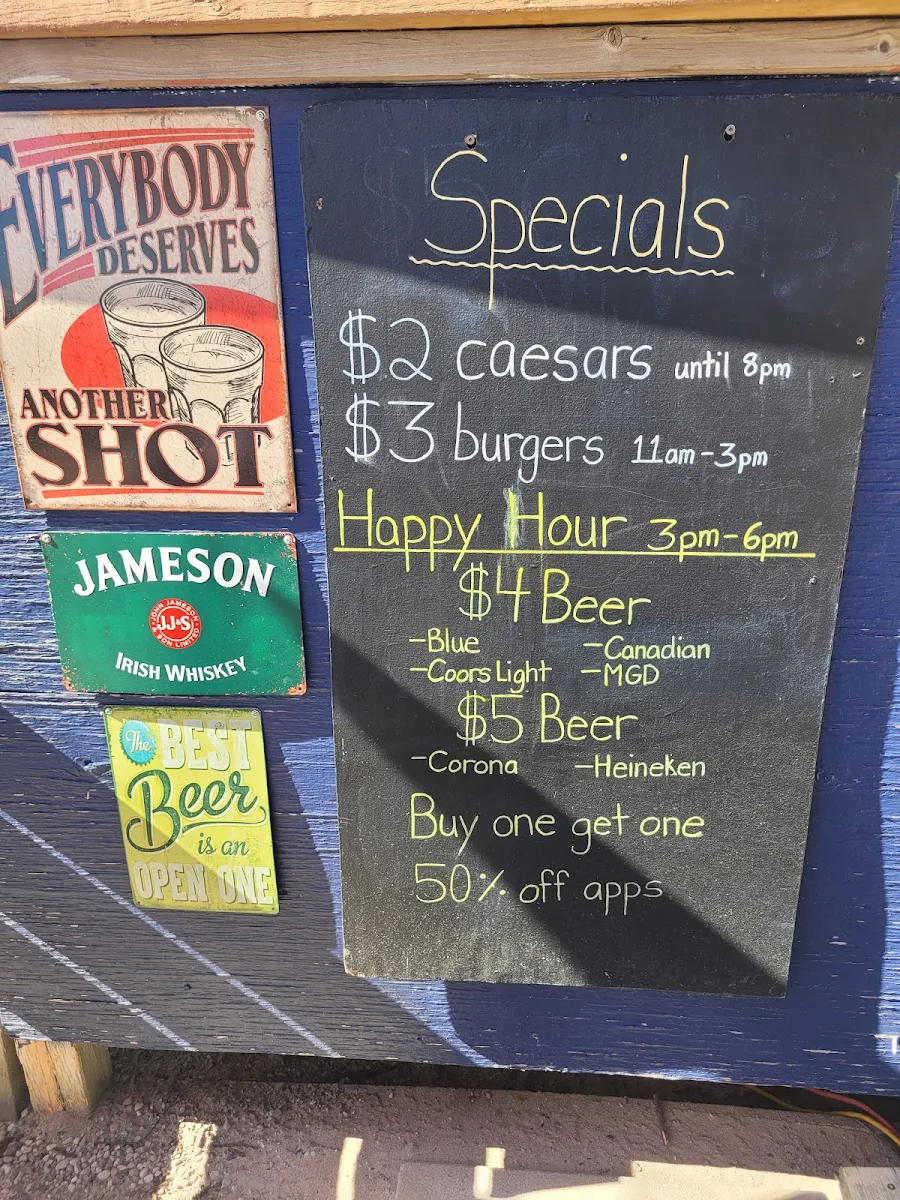 EVERYBODY
DESERVES
ANOTHER
SHOT
JAMESON
JOHN JAMESON
JJ&S
& SON LIMITED
IRISH WHISKEY
The BEST
Beer
is an
OPEN ONE
Specials
$2 caesars until 8pm
$3 burgers 11am-3pm
Happy Hour 3pm-6pm
$4 Beer
-Blue -Canadian
-Coors Light -MGD
$5 Beer
-Corona -Heineken
Buy one get one
50% off apps